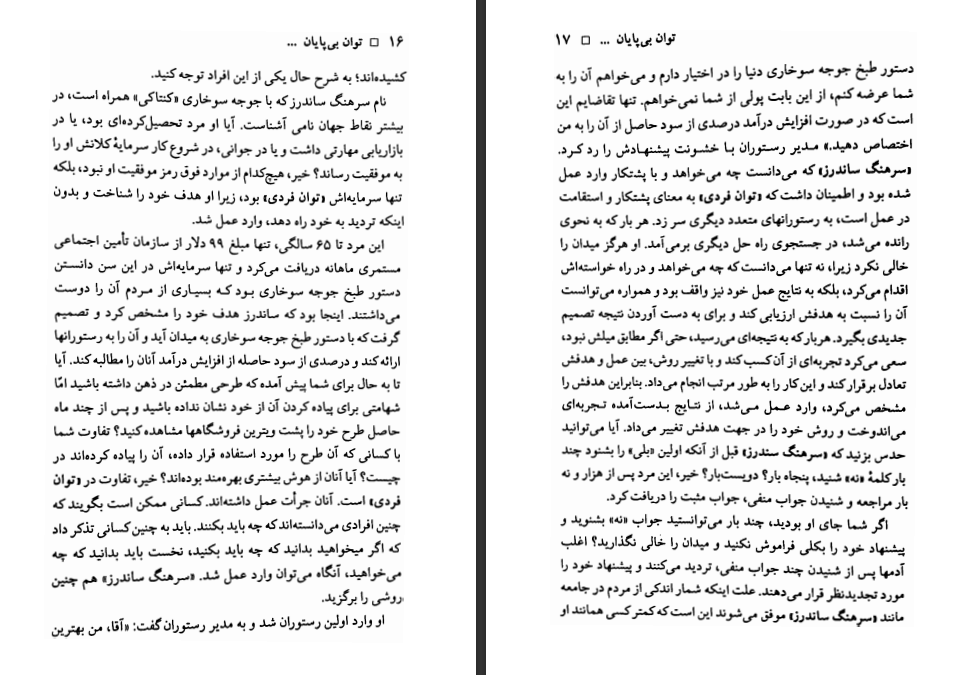 ۱۶ □ توان بی‌پایان ...
کشیده‌اند؛ به شرح حال یکی از این افراد توجه کنید.
نام سرهنگ ساندرز که با جوجه سوخاری «کنتاکی» همراه است، در
بیشتر نقاط جهان نامی آشناست. آیا او مرد تحصیل‌کرده‌ای بود، یا در
بازاریابی مهارتی داشت و یا در جوانی، در شروع کار سرمایهٔ کلانش او را
به موفقیت رساند؟ خیر، هیچ‌کدام از موارد فوق رمز موفقیت او نبود، بلکه
تنها سرمایه‌اش «توان فردی» بود، زیرا او هدف خود را شناخت و بدون
اینکه تردید به خود راه دهد، وارد عمل شد.
این مرد تا ۶۵ سالگی، تنها مبلغ ۹۹ دلار از سازمان تأمین اجتماعی
مستمری ماهانه دریافت می‌کرد و تنها سرمایه‌اش در این سن دانستن
دستور طبخ جوجه سوخاری بود که بسیاری از مردم آن را دوست
می‌داشتند. اینجا بود که ساندرز هدف خود را مشخص کرد و تصمیم
گرفت که با دستور طبخ جوجه سوخاری به میدان آید و آن را به رستورانها
ارائه کند و درصدی از سود حاصله از افزایش درآمد آنان را مطالبه کند. آیا
تا به حال برای شما پیش آمده که طرحی مطمئن در ذهن داشته باشید امّا
شهامتی برای پیاده کردن آن از خود نشان نداده باشید و پس از چند ماه
حاصل طرح خود را پشت ویترین فروشگاهها مشاهده کنید؟ تفاوت شما
با کسانی که آن طرح را مورد استفاده قرار داده، آن را پیاده کرده‌اند در
چیست؟ آیا آنان از هوش بیشتری بهره‌مند بوده‌اند؟ خیر، تفاوت در «توان
فردی» است. آنان جرأت عمل داشته‌اند. کسانی ممکن است بگویند که
چنین افرادی می‌دانسته‌اند که چه باید بکنند. باید به چنین کسانی تذکر داد
که اگر میخواهید بدانید که چه باید بکنید، نخست باید بدانید که چه
می‌خواهید، آنگاه می‌توان وارد عمل شد. «سرهنگ ساندرز» هم چنین
روشی را برگزید.
او وارد اولین رستوران شد و به مدیر رستوران گفت: «آقا، من بهترین
توان بی‌پایان ... □ ۱۷
دستور طبخ جوجه سوخاری دنیا را در اختیار دارم و می‌خواهم آن را به
شما عرضه کنم، از این بابت پولی از شما نمی‌خواهم. تنها تقاضایم این
است که در صورت افزایش درآمد درصدی از سود حاصل از آن را به من
اختصاص دهید.» مدیر رستوران با خشونت پیشنهادش را رد کرد.
«سرهنگ ساندرز» که می‌دانست چه می‌خواهد و با پشتکار وارد عمل
شده بود و اطمینان داشت که «توان فردی» به معنای پشتکار و استقامت
در عمل است، به رستورانهای متعدد دیگری سر زد. هر بار که به نحوی
رانده می‌شد، در جستجوی راه حل دیگری برمی‌آمد. او هرگز میدان را
خالی نکرد زیرا، نه تنها می‌دانست که چه می‌خواهد و در راه خواسته‌اش
اقدام می‌کرد، بلکه به نتایج عمل خود نیز واقف بود و همواره می‌توانست
آن را نسبت به هدفش ارزیابی کند و برای به دست آوردن نتیجه تصمیم
جدیدی بگیرد. هربار که به نتیجه‌ای می‌رسید، حتی اگر مطابق میلش نبود،
سعی می‌کرد تجربه‌ای از آن کسب کند و با تغییر روش، بین عمل و هدفش
تعادل برقرار کند و این کار را به طور مرتب انجام می‌داد. بنابراین هدفش را
مشخص می‌کرد، وارد عمل می‌شد، از نتایج بدست‌آمده تجربه‌ای
می‌اندوخت و روش خود را در جهت هدفش تغییر می‌داد. آیا می‌توانید
حدس بزنید که «سرهنگ سندرز» قبل از آنکه اولین «بلی» را بشنود چند
بار کلمهٔ «نه» شنید، پنجاه بار؟ دویست‌بار؟ خیر، این مرد پس از هزار و نه
بار مراجعه و شنیدن جواب منفی، جواب مثبت را دریافت کرد.
اگر شما جای او بودید، چند بار می‌توانستید جواب «نه» بشنوید و
پیشنهاد خود را بکلی فراموش نکنید و میدان را خالی نگذارید؟ اغلب
آدمها پس از شنیدن چند جواب منفی، تردید می‌کنند و پیشنهاد خود را
مورد تجدیدنظر قرار می‌دهند. علت اینکه شمار اندکی از مردم در جامعه
مانند «سرهنگ ساندرز» موفق می‌شوند این است که کمتر کسی همانند او